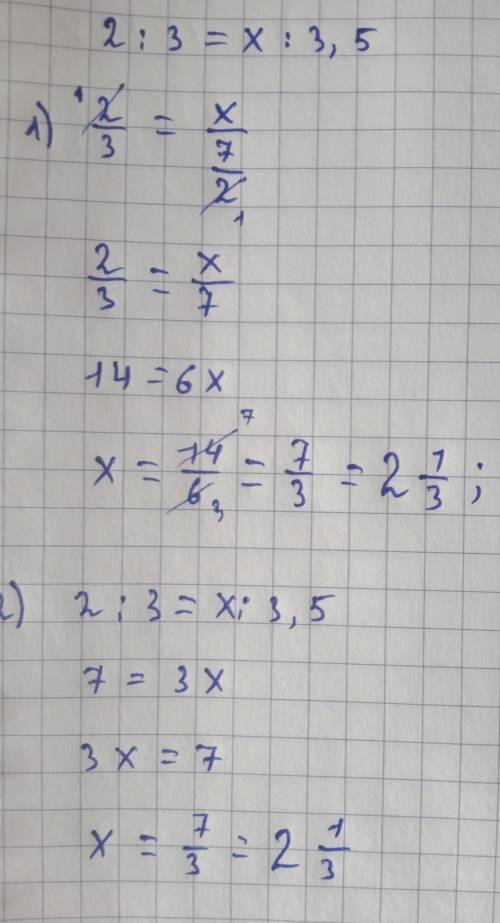 2 : 3 = x : 3,5
1) ¹2/3 = x/(7/2₁)
2/3 = x/7
14 = 6x
x = 14⁷/6₃ = 7/3 = 2 1/3 ;
2) 2 : 3 = x : 3,5
7 = 3x
3x = 7
x = 7/3 = 2 1/3